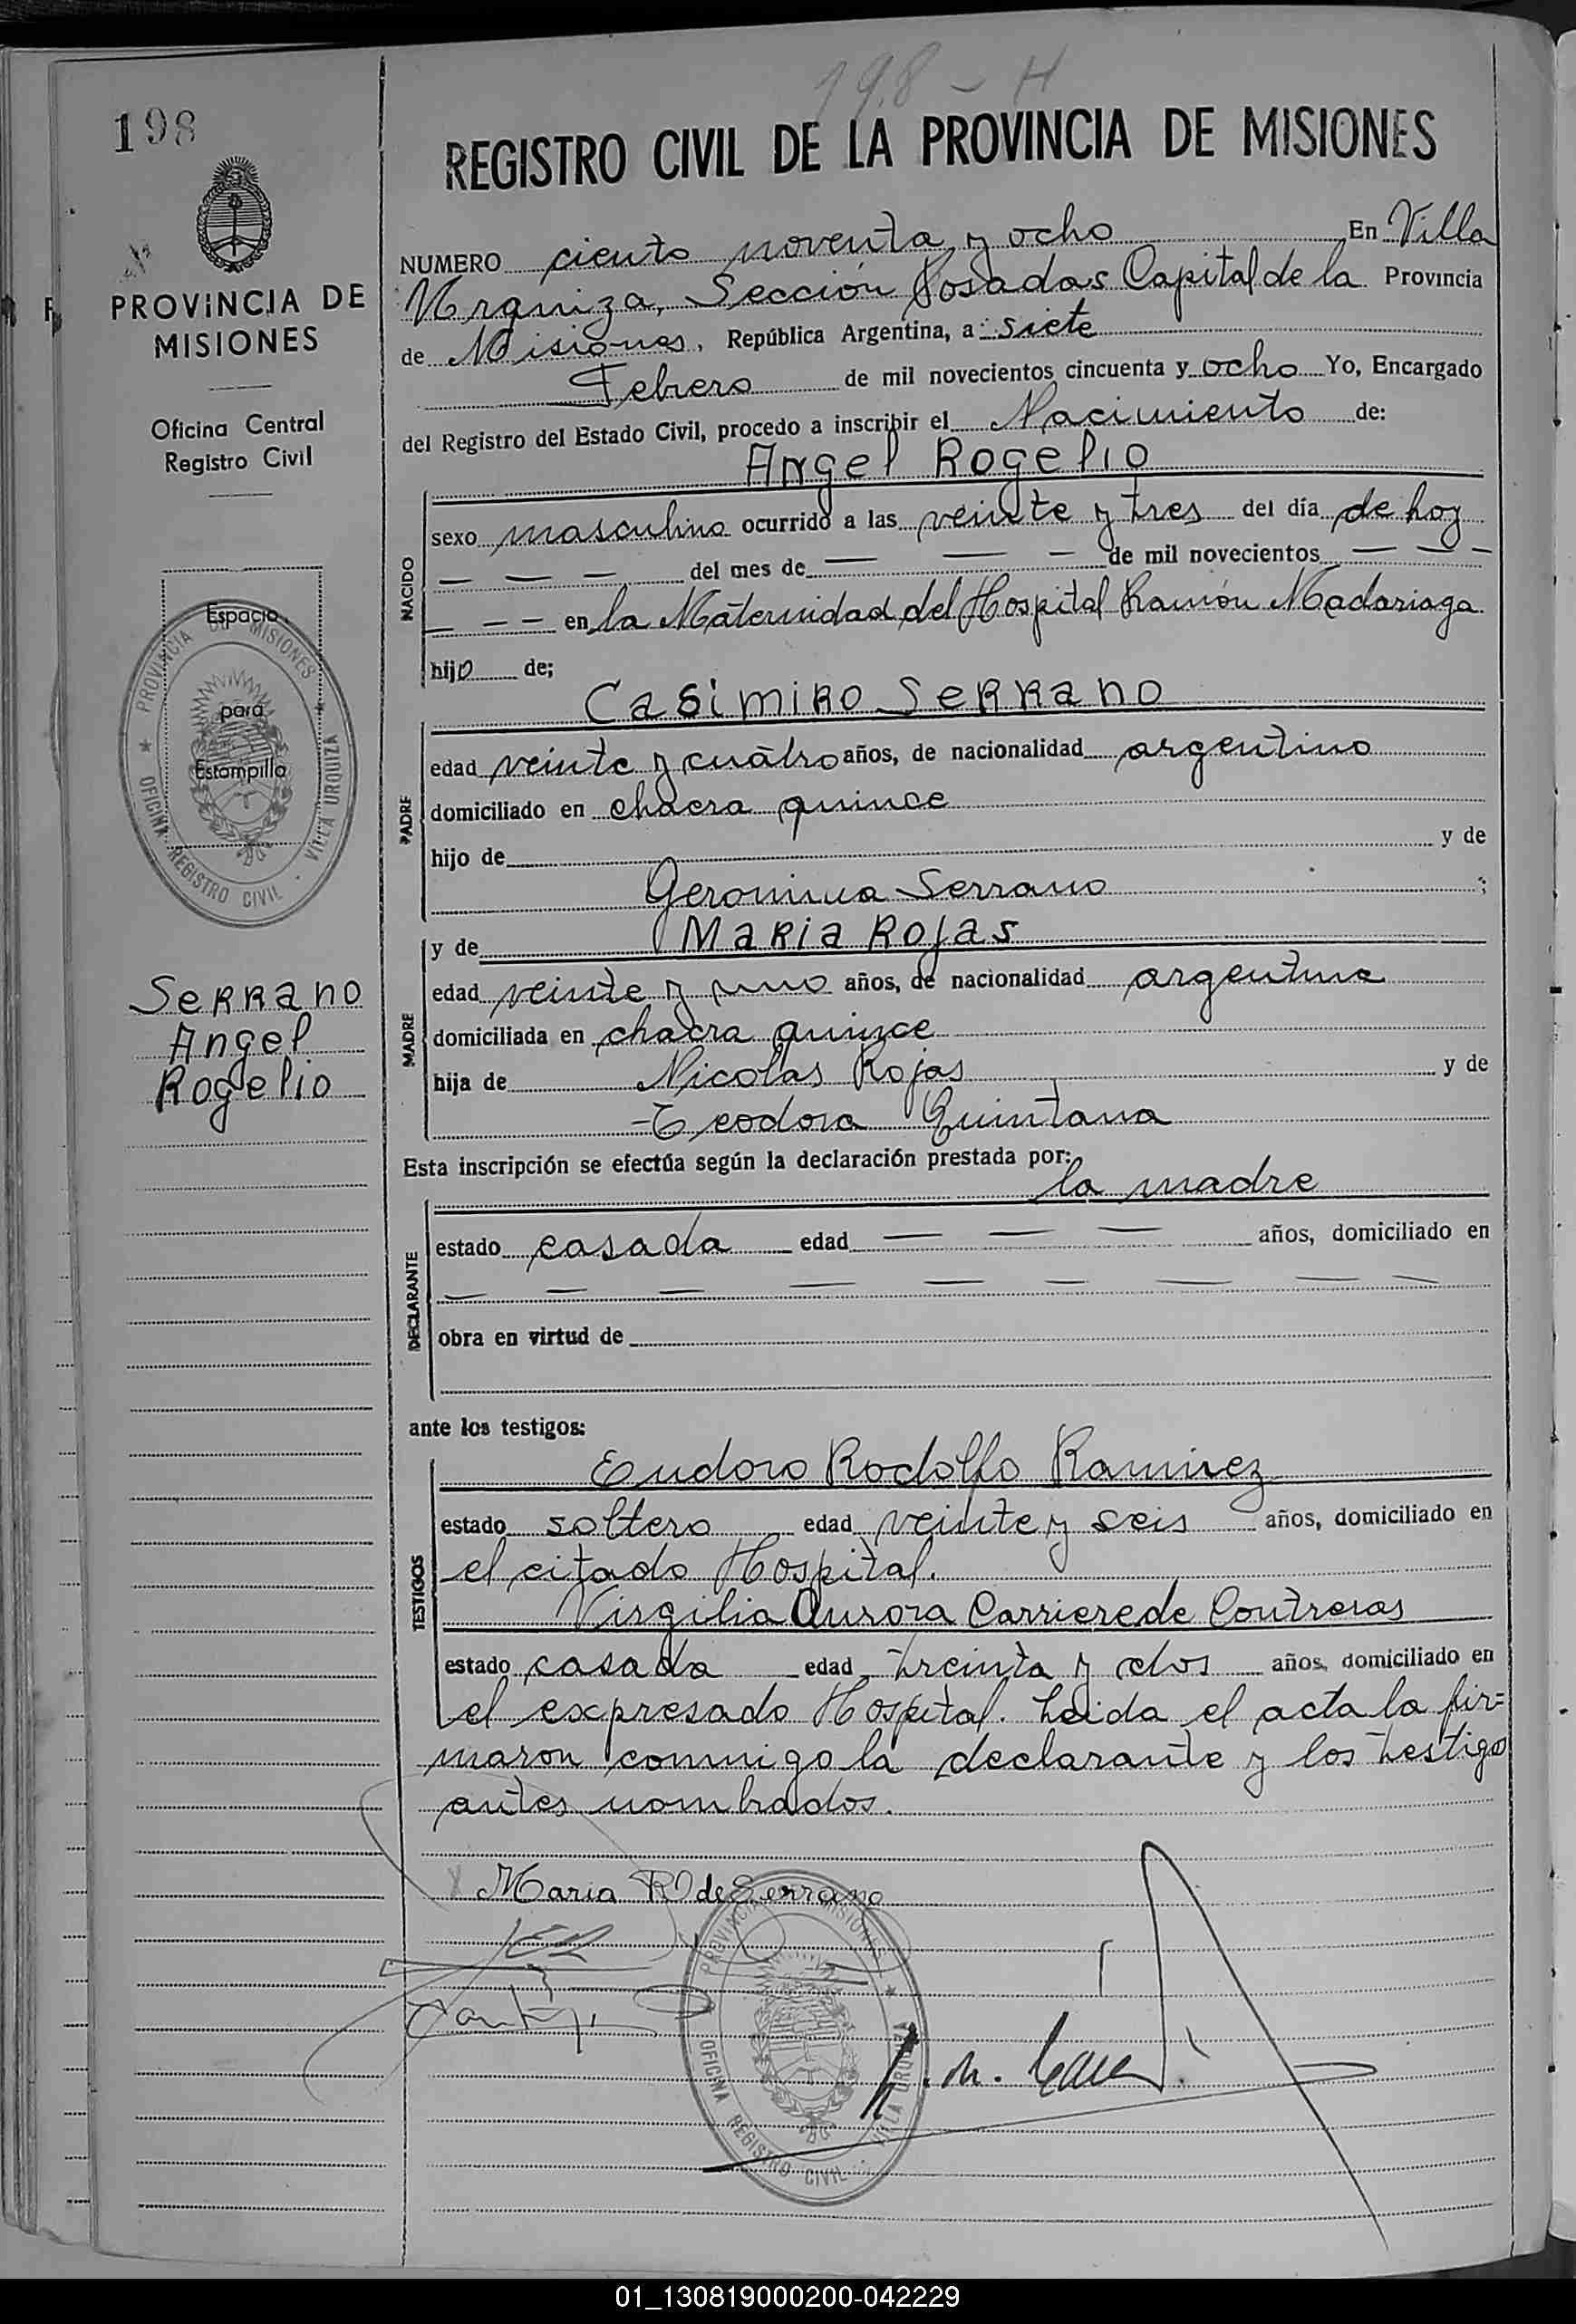 198 - H
198
REGISTRO CIVIL DE LA PROVINCIA DE MISIONES
PROVINCIA DE
MISIONES
Oficina Central
Registro Civil
Espacio
para
Estampilla
PROVINCIA DE MISIONES
OFICINA REGISTRO CIVIL - VILLA URQUIZA
Serrano
Angel
Rogelio
NUMERO ciento noventa y ocho En Villa
Urquiza, Sección Posadas Capital de la Provincia
de Misiones, República Argentina, a siete
Febrero de mil novecientos cincuenta y ocho Yo, Encargado
del Registro del Estado Civil, procedo a inscribir el Nacimiento de:
Angel Rogelio
NACIDO
sexo masculino ocurrido a las veinte y tres del día de hoy
— — — del mes de — — — de mil novecientos — — —
— — — en la Maternidad del Hospital Ramón Madariaga
hijo de;
Casimiro Serrano
PADRE
edad veinte y cuatro años, de nacionalidad argentino
domiciliado en chacra quince
hijo de y de
Geronima Serrano ;
y de Maria Rojas
MADRE
edad veinte y uno años, de nacionalidad argentina
domiciliada en chacra quince
hija de Nicolas Rojas y de
Teodora Quintana
Esta inscripción se efectúa según la declaración prestada por:
la madre
DECLARANTE
estado casada edad — — — años, domiciliado en
— — — — — — — — —
obra en virtud de
ante los testigos:
TESTIGOS
Eudoro Rodolfo Ramirez
estado soltero edad veinte y seis años, domiciliado en
el citado Hospital.
Virgilia Aurora Carriere de Contreras
estado casada edad treinta y dos años, domiciliado en
el expresado Hospital. Leida el acta la fir=
maron conmigo la declarante y los testigo
antes nombrados.
X Maria R de Serrano
PROVINCIA DE MISIONES
OFICINA REGISTRO CIVIL - VILLA URQUIZA
01_130819000200-042229